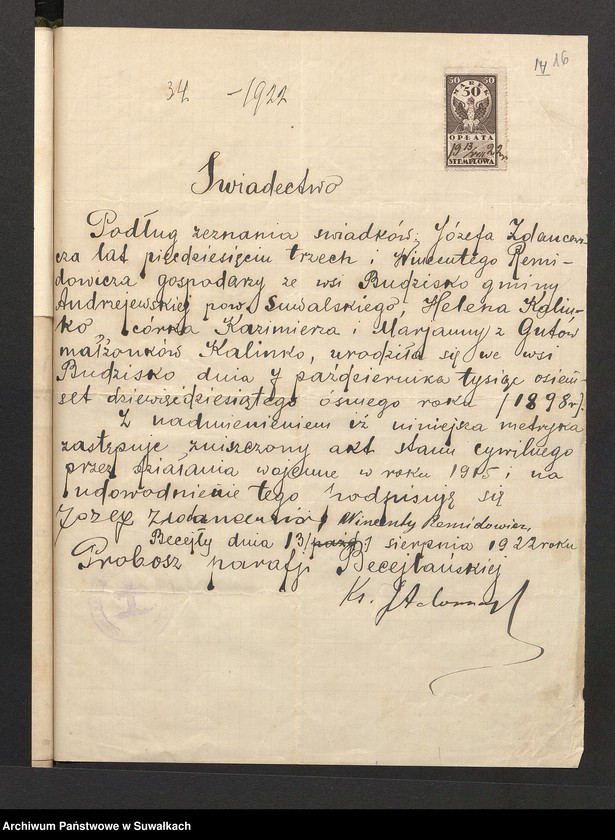 14 16
34 - 1922
50 50
MAREK
50
OPŁATA
19 13/VIII 22 r.
STEMPLOWA
Swiadectwo
Podług zeznania swiadków; Józefa Zdancew-
cza lat pięcdziesięciu trzech i Wincentego Remi-
dowicza gospodarzy ze wsi Budzisko gminy
Andrzejewskiej pow. Suwalskiego, Helena Kalin-
ko, córka Kazimierza i Marjanny z Gutow
małżonków Kalinko, urodziła się we wsi
Budzisko dnia 7 października tysiąc osiem-
set dziewięcdziesiątego ósmego roku (1898 r).
Z nadmienieniem iż niniejsza metryka
zastępuje zniszczony akt stanu cywilnego
przez działania wojenne w roku 1915 i na
udowodnienie tego podpisują się
Józef Wincenty Remidowicz,
Becejły dnia 13 sierpnia 1922 roku
Probosz parafji Becejłańskiej
Ks. J
Archiwum Państwowe w Suwałkach